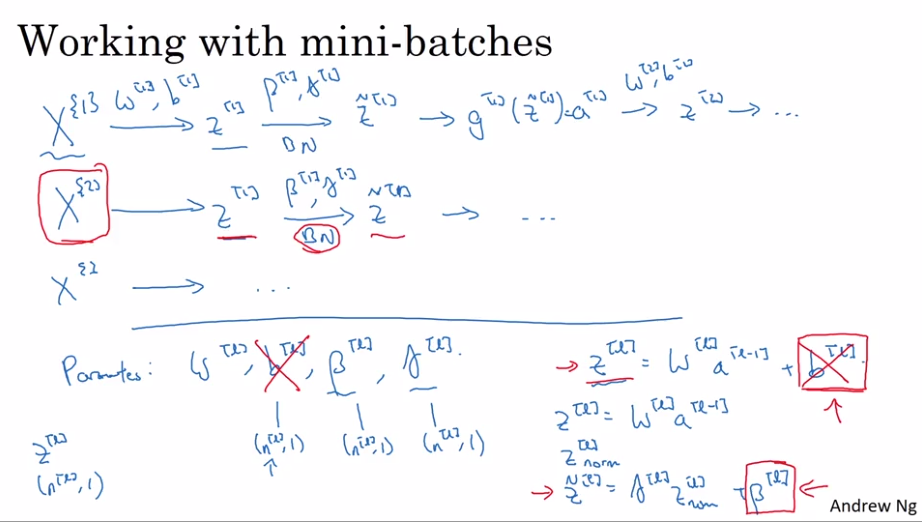 Working with mini-batches
X^{1} W^[1], b^[1] → z^[1] β^[1], γ^[1] BN → z̃^[1] → g^[1](z̃^[1]) = a^[1] W^[2], b^[2] → z^[2] → ...
X^{2} → z^[1] β^[1], γ^[1] BN → z̃^[1] → ...
X^{3} → ...
Parameters: W^[l], b^[l], β^[l], γ^[l].
z^[l] = W^[l] a^[l-1] + b^[l]
(n^[l], 1) (n^[l], 1) (n^[l], 1)
z^[l] = W^[l] a^[l-1]
z^[l]
(n^[l], 1)
z^[l]_norm
z̃^[l] = γ^[l] z^[l]_norm + β^[l]
Andrew Ng